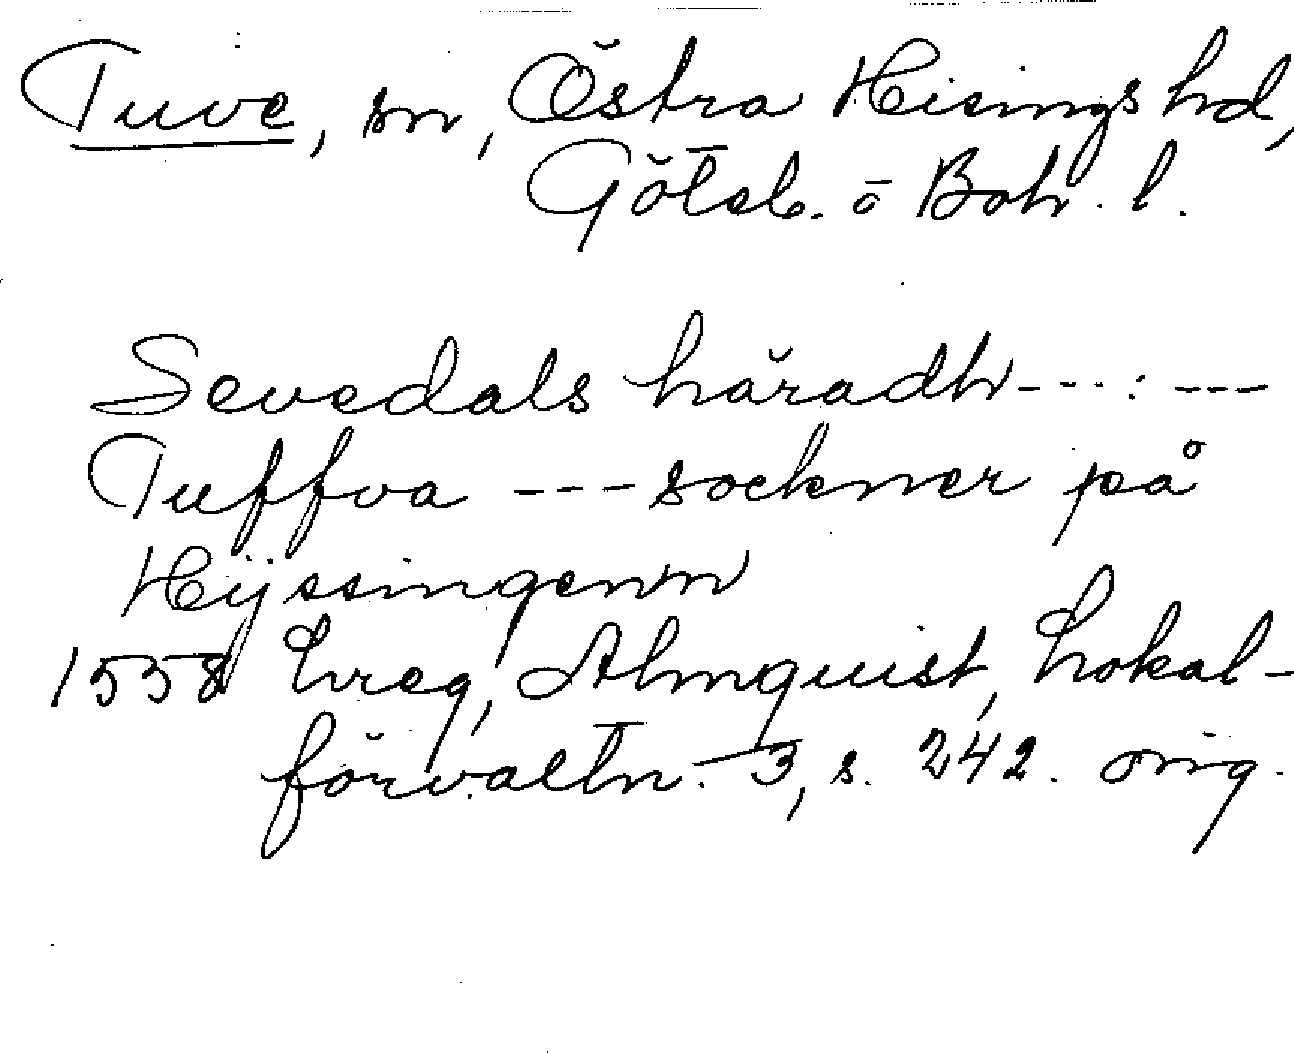 Tuve, sn, Östra Hisings hd,
Göteb. o Boh. l.
Sevedals häradh---:---
Tuffva --- sockner på
Hÿssingenn
1558 Lreg, Almquist, Lokal-
förvaltn. 3, s. 242. orig.